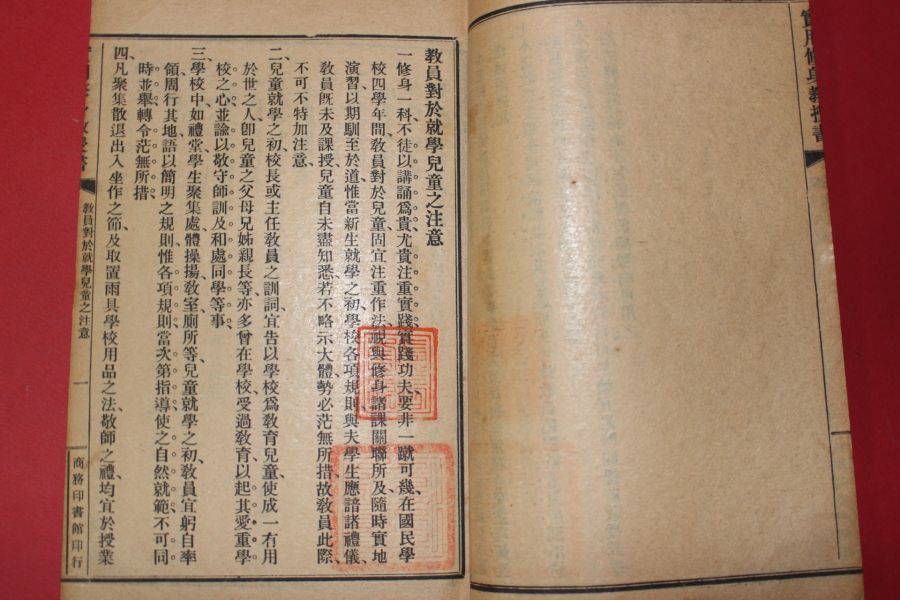 實用修身教授書
教員對於就學兒童之注意
一修身一科、不徒以講誦爲貴、尤貴注重實踐、實踐功夫、要非一蹴可幾、在國民學
校四學年間、教員對於兒童、固宜注重作法、視與修身諸課關聯所及、隨時實地
演習、以期馴至於道、惟當新生就學之初、學校各項規則、與夫學生應諳諸禮儀、
教員旣未及課授、兒童自未盡知悉、若不略示大體、勢必茫無所措、故教員此際
不可不特加注意、
二兒童就學之初、校長或主任教員之訓詞、宜告以學校爲教育兒童、使成一有用
於世之人、卽兒童之父母兄姊親長等、亦多曾在學校、受過教育、以起其愛重學
校之心、並諭以敬守師訓、及和處同學等事、
三學校中如禮堂、學生聚集處、體操場、教室、廁所等、兒童就學之初、教員宜躬自率
領、周行其地、語以簡明之規則、惟各項規則、當次第指導、使之自然就範、不可同
時並舉、轉令茫無所措、
四凡聚集散退、出入坐作之節、及取置雨具學校用品之法、敬師之禮、均宜於授業
教員對於就學兒童之注意
一
商務印書館印行